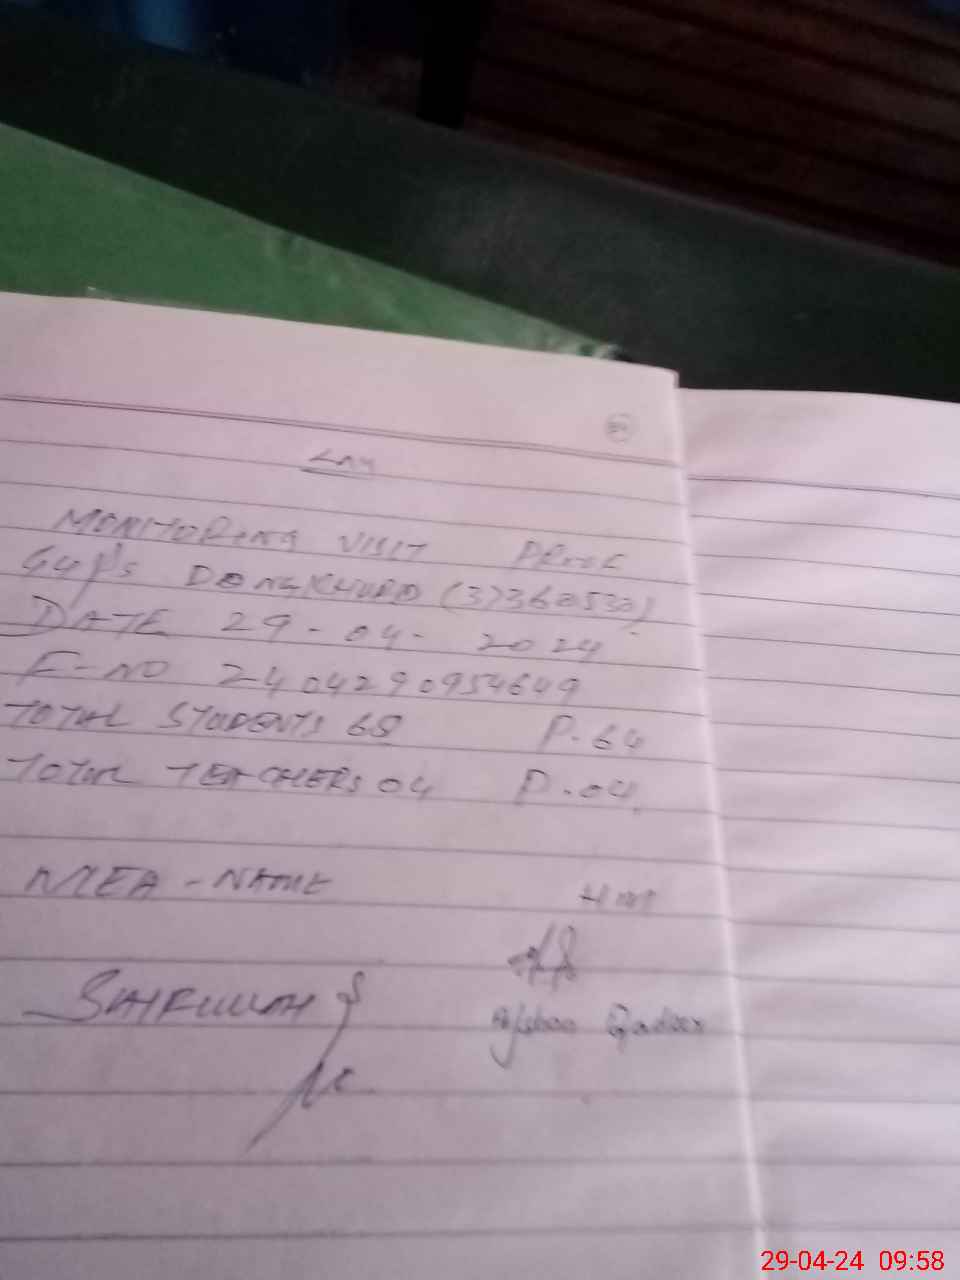 MONITORING VISIT PROOF
GGPS DONGKHURD (37360530)
DATE 29-04-2024
F-NO 2404290954649
TOTAL STUDENTS 68 P.64
TOTAL TEACHERS 04 P.04
MEA-NAME
SAIFULLAH
Afshan
29-04-24 09:58